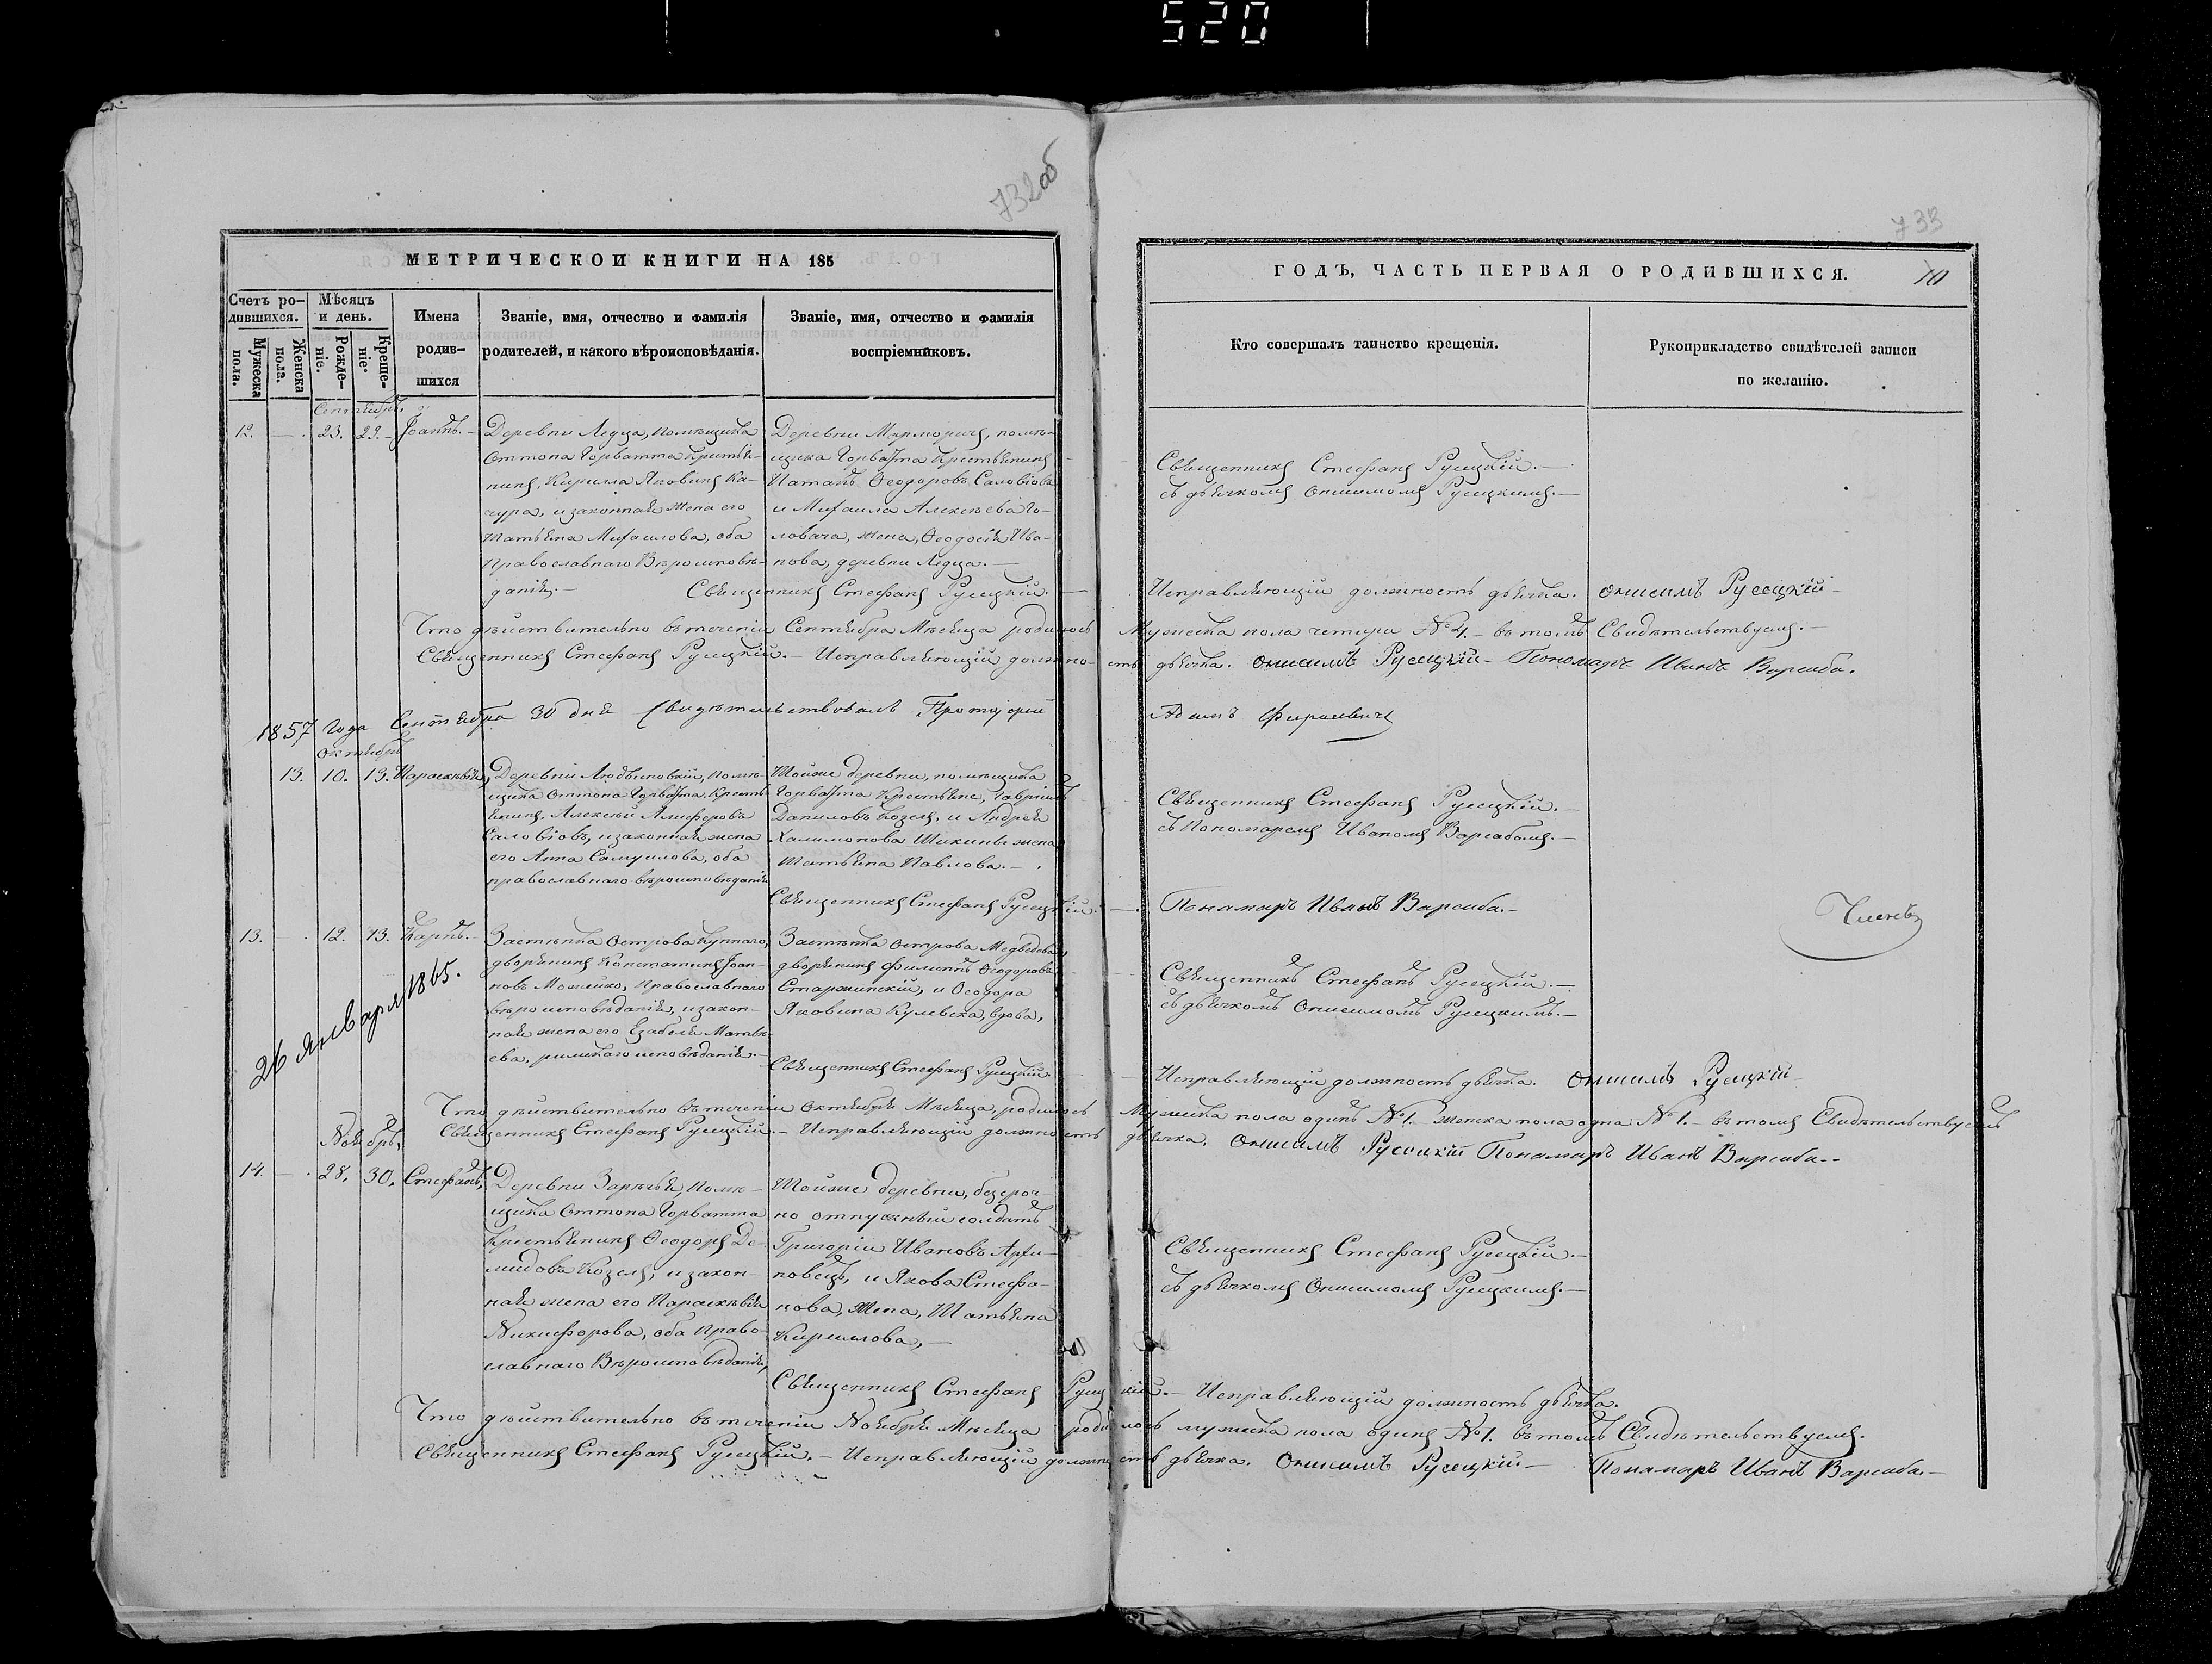 520
732об
733
МЕТРИЧЕСКОЙ КНИГИ НА 185
ГОДЪ, ЧАСТЬ ПЕРВАЯ О РОДИВШИХСЯ.
10
Счетъ ро-
дившихся.
Мужеска
пола.
Женска
пола.
Мѣсяцъ
и день.
Рожде-
ніе.
Креще-
ніе.
Имена
родив-
шихся
Званіе, имя, отчество и фамилія
родителей, и какого вѣроисповѣданія.
Званіе, имя, отчество и фамилія
воспріемниковъ.
Кто совершалъ таинство крещенія.
Рукоприкладство свидѣтелей записи
по желанію.
Сентябрь
12. — 23. 29. Іоаннъ.
Деревни Ледца, помѣщика
Оттона Горватта Крестья-
нинъ, Кирилла Яковинъ Ка-
чура, и законная жена его
Татьяна Михаилова, оба
Православнаго Вѣроисповѣ-
данія.—
Деревни Марморичъ, помѣ-
щика Горватта Крестьянинъ
Потапъ Ѳеодоровъ Саловіовъ
и Михаила Алексѣева Го-
ловача, жена, Ѳеодосія Ива-
нова, деревни Ледца.—
Священникъ Стефанъ Русецкій.—
Священникъ Стефанъ Русецкій.—
съ дьячкомъ Онисимомъ Русецкимъ.—
Исправляющій должность дьячка. Онисимъ Русецкій
Что дѣйствительно въ теченіи Сентября Мѣсяца родилось Мужеска пола четыри №4.— въ томъ Свидѣтельствуемъ.—
Священникъ Стефанъ Русецкій.— Исправляющій должно-сть дьячка. Онисимъ Русецкій— Пономарь Иванъ Варсаба.
1857 года Сентября 30 дня Свидѣтельствовалъ Протоіерей Адамъ
Октябрь
13. 10. 13. Параскѣвія
Деревни Любвиновкій, помѣ-
щика Оттона Горватта Кресть-
янинъ, Алексѣй Алиферовъ
Саловіовъ, и законная жена
его Анна Самуилова, оба
православнаго вѣроисповѣданія
Тойже деревни, помѣщика
Горватта Крестьяне, Гавріилъ
Даниловъ Козелъ, и Андрея
Халимонова Шикины жена
Татьяна Павлова.—
Священникъ Стефанъ Русецкій.
Священникъ Стефанъ Русецкій.—
съ Пономаремъ Иваномъ Варсабомъ.—
Пономаръ Иванъ Варсаба.—
13. — 12. 13. Карпъ.—
26 Января 1865.
Застѣнка Острова Купнаго,
дворянинъ Константинъ Іоан-
новъ Можейко, Православнаго
вѣроисповѣданія, и закон-
ная жена его Езабеля Матвѣ-
ева, римскаго исповѣданія.—
Застѣнка Острова Медведева,
дворянинъ Филиппъ Ѳеодоровъ
Старжинскій, и Ѳеодора
Яковина Кулевска, вдова,
Священникъ Стефанъ Русецкій.
Священникъ Стефанъ Русецкій.—
съ дьячкомъ Онисимомъ Русецкимъ.—
Исправляющій должность дьячка. Онисимъ Русецкій
Что дѣйствительно въ теченіи Октября Мѣсяца, родилось Мужеска пола одинъ №1.— женска пола одна №1.— въ томъ Свидѣтельствуемъ
Священникъ Стефанъ Русецкій.— Исправляющій должность дьячка. Онисимъ Русецкій Пономаръ Иванъ Варсаба.—
Ноябрь
14. — 28. 30. Стефанъ.
Деревни Зарѣчья, помѣ-
щика Оттона Горватта
Крестьянинъ Ѳеодоръ Де-
мидовъ Козелъ, и закон-
ная жена его Параскѣвія
Никифорова, оба Право-
славнаго Вѣроисповѣданія,
Тойже деревни, безсроч-
но отпускный солдатъ
Григорій Ивановъ Архи-
повецъ, и Якова Стефа-
нова, жена, Татьяна
Кирилова,—
Священникъ Стефанъ Русецкій.— Исправляющій должность дьячка.
Священникъ Стефанъ Русецкій.—
съ дьячкомъ Онисимомъ Русецкимъ.—
Что дѣйствительно въ теченіи Ноября Мѣсяца родилось мужеска пола одинъ №1. въ томъ Свидѣтельствуемъ.
Священникъ Стефанъ Русецкій.— Исправляющій должность дьячка. Онисимъ Русецкій— Пономаръ Иванъ Варсаба.—